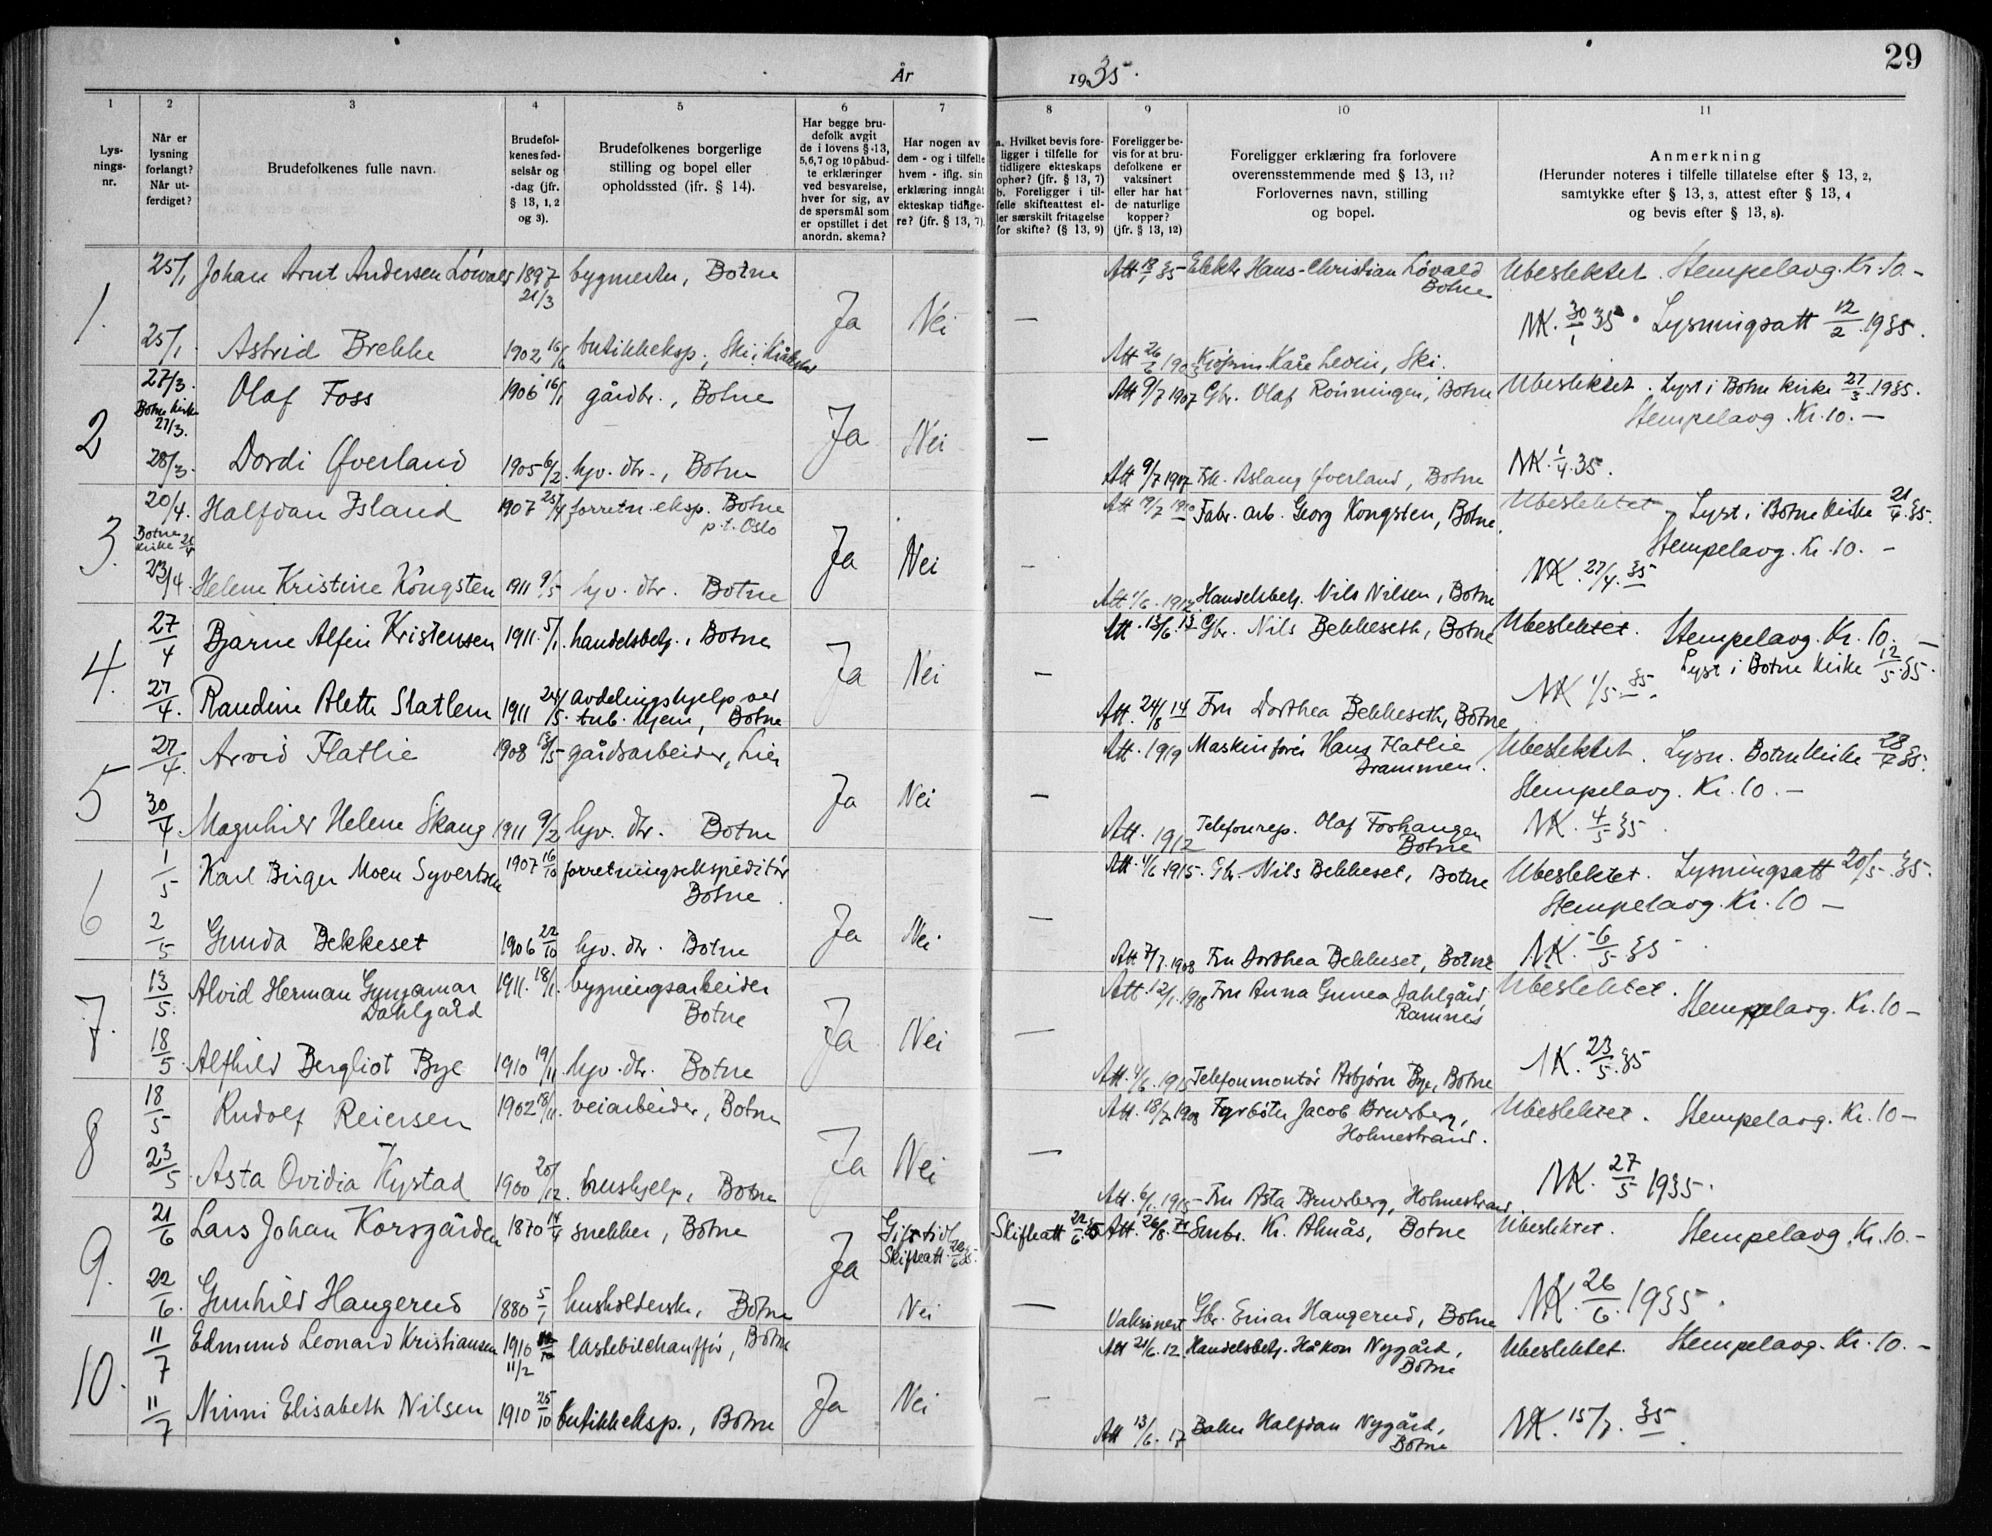 29
År 1935.
1 2 3 4 5 6 7 8 9 10 11
Lys-
nings-
nr.
Når er
lysning
forlangt?
Når ut-
ferdiget?
Brudefolkenes fulle navn.
Brudefol-
kenes fød-
selsår og
-dag (jfr.
§ 13, 1, 2
og 3).
Brudefolkenes borgerlige
stilling og bopel eller
opholdssted (jfr. § 14).
Har begge bru-
defolk avgit
de i lovens § 13,
5,6,7 og 10 påbud-
te erklæringer
ved besvarelse,
hver for sig, av
de spørsmål som
er opstillet i det
anordn. skema?
Har nogen av
dem - og i tilfelle
hvem - iflg. sin
erklæring inngått
ekteskap tidlige-
re? (jfr. § 13, 7)
a. Hvilket bevis fore-
ligger i tilfelle for
tidligere ekteskaps
ophør? (jfr. § 13, 7)
b. Foreligger i til-
felle skifteattest el-
ler særskilt fritagelse
for skifte? (§ 13, 9)
Foreligger be-
vis for at bru-
defolkene er
vaksinert
eller har hat
de naturlige
kopper?
(jfr. § 13, 12)
Foreligger erklæring fra forlovere
overensstemmende med § 13, 11?
Forlovernes navn, stilling
og bopel.
Anmerkning
(Herunder noteres i tilfelle tillatelse efter § 13, 2,
samtykke efter § 13, 3, attest efter § 13, 4
og bevis efter § 13, 8).
1. 25/1 Johan Arnt Andersen Løvald 1897 21/3 bygmester, Botne Ja Nei — Att 18/1 35 Elektr. Hans-Christian Løvald Botne Ubeslektet. Stempelavg. Kr. 10.-
NK. 30/1 35. Lysningsatt 12/2 1935.
25/1 Astrid Brekke 1902 16/6 butikkeksp., Ski i Kråkstad Kåre Levin, Ski.
2 27/3. Botne kirke 27/3. Olaf Foss 1906 16/1 gårdbr., Botne Ja Nei — Att 9/7 1907 Gbr. Olaf Rønningen, Botne Ubeslektet. Lyst i Botne kirke 27/3 1935.
Stempelavg. Kr. 10.-
28/3. Dordi Øverland 1905 6/2. hjv. dtr., Botne Att 9/7 1907 Frk. Aslaug Øverland, Botne NK. 1/4. 35.
3. 20/4. Botne kirke 21/4 Halfdan Island 1907 25/4 forretn. eksp. Botne p.t. Oslo Ja Nei - Att 19/7 1910 Fabr. arb. Georg Kongsten, Botne. Ubeslektet. Lyst i Botne kirke 21/4. 35.
Stempelavg. Kr. 10. -
23/4. Helene Kristine Kongsten 1911 9/5 hjv. dtr. Botne Att 1/6. 1912. Handelsbetj. Nils Nilsen, Botne NK. 27/4. 35
4. 27/4 Bjarne Alfin Kristensen 1911. 5/1. handelsbetj., Botne Ja Nei — Att. 13/6. 13 Gbr. Nils Bekkeseth, Botne Ubeslektet. Stempelavg. Kr. 10. —
Lyst i Botne kirke 12/5. 35.
27/4. Raudine Alette Slatlem 1911 24/5. avdelingshjelp ved tub. hjem, Botne Att. 24/8 14 Fru Dorthea Bekkeseth, Botne NK 1/5. 35.
5 27/4. Arvid Flatlie 1908 13/5 gårdsarbeider, Lier Ja Nei — Att. 1919 Maskinfører Hans Flatlie Drammen. Ubeslektet. Lysn. Botne kirke 28/4 35.
Stempelavg. Kr. 10.-
30/4. Magnhild Helene Skaug 1911 9/2 hjv. dtr. Botne Att. 1912 Telefonrep. Olaf Forhaugen Botne NK. 4/5 35
6 1/5 Karl Birger Moen Syvertsen 1907 16/10 forretningsekspeditør Botne. Ja Nei — Att. 4/6. 1915. Gbr. Nils Bekkeset, Botne Ubeslektet. Lysningsatt 20/5. 35.
Stempelavg. Kr. 10 —
2/5 Gunda Bekkeset 1906 22/10 hjv. dtr. Botne Att. 7/7. 1908 Fru Dorthea Bekkeset, Botne NK. 6/5 35
7. 13/5. Alvid Herman Gunnar Dahlgård 1911. 18/1. bygningsarbeider Botne Ja Nei — Att. 12/1. 1918 Fru Anna Dahlgård, Ramnes Ubeslektet. Stempelavg. Kr. 10 —
18/5. Alfhild Bergliot Bye 1910 19/11 hjv. dtr. Botne Att. 4/6. 1915 Telefonmontør Asbjørn Bye, Botne NK. 23/5. 35
8 18/5 Rudolf Reiersen 1902 18/11. veiarbeider, Botne Ja Nei — Att. 18/7 1903 Fyrbøter Jacob Brusberg, Holmestrand. Ubeslektet. Stempelavg. Kr. 10 —
23/5. Asta Ovidia Kystad 1900 20/12. hushjelp, Botne Att. 6/1. 1915 Fru Asta Brusberg, Holmestrand NK. 27/5 1935.
9. 21/6 Lars Johan Korsgården 1870 14/4 snekker, Botne Ja Gift tidl. Skifteatt. 22/6 35. Skifteatt 22/6 35 Att. 26/8. 71 Smbr. Kr. Alnås, Botne Ubeslektet. Stempelavg. Kr. 10.-
22/6. Gunhild Haugerud 1880 5/1 husholderske, Botne Nei — Vaksinert Gbr. Einar Haugerud, Botne NK. 26/6. 1935.
10. 11/7 Edmund Leonard Kristiansen 1910 11/2 lastebilchauffør, Botne Ja Nei — Att 21/6. 12. Handelsbetj. Håkon Nygård, Botne Ubeslektet. Stempelavg. Kr. 10. -
11/7 Ninni Elisabeth Nilsen 1910 25/10 butikkeksp., Botne Att 13/6. 17 Baker Halfdan Nygård, Botne NK. 15/7. 35